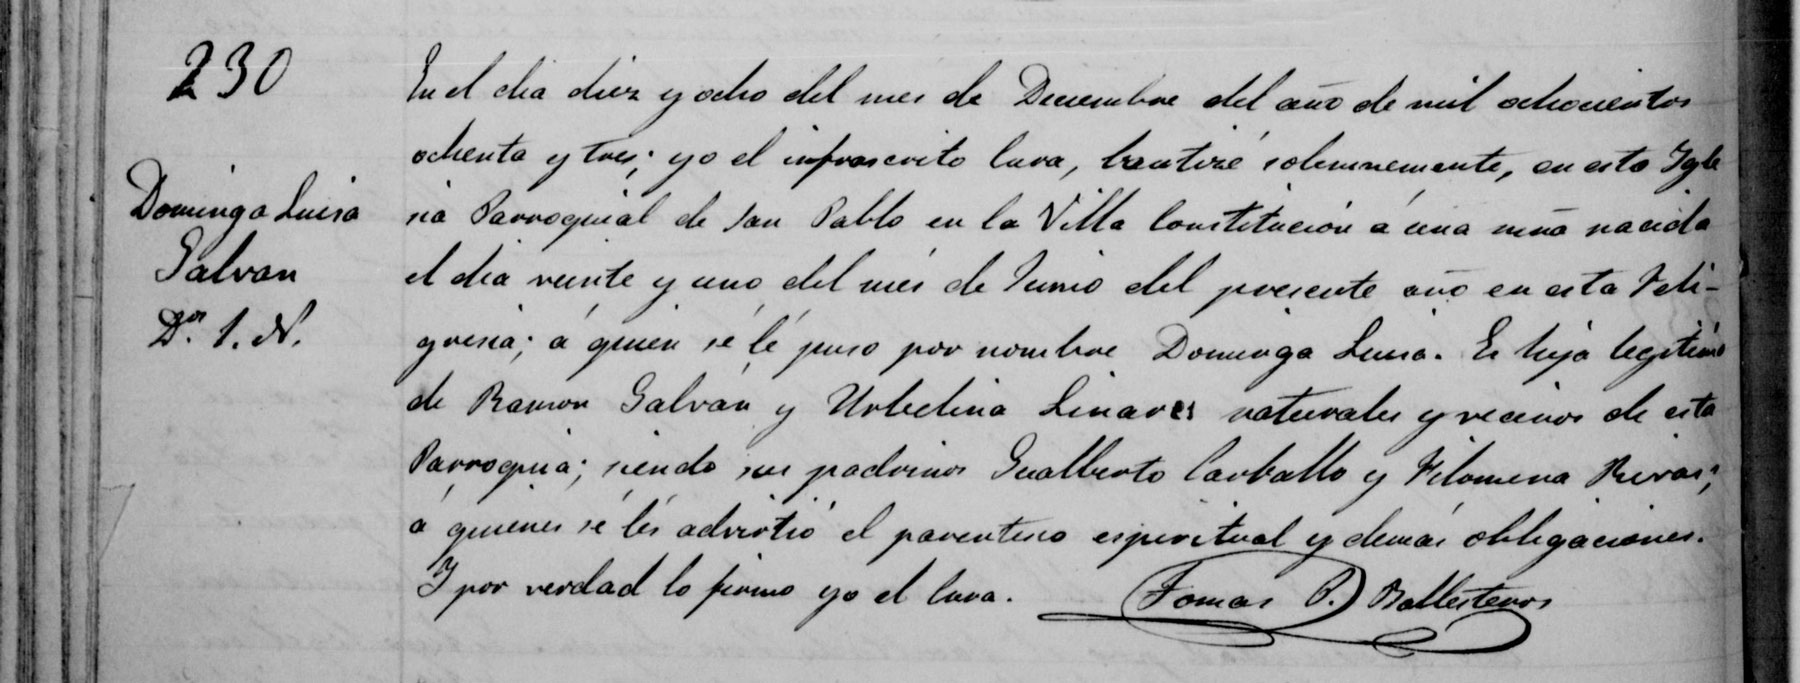 230
Domingo Luisa
Galvan
Dros 1. N.
En el dia diez y ocho del mes de Deciembre del año de mil ochocientos
ochenta y tres; yo el infrascrito Cura, bautizé solemnemente, en esta Ygle
sia Parroquial de San Pablo en la Villa Constitución á una niña nacida
el dia veinte y uno del més de Junio del presente año en esta Feli-
gresia; á quien sé lé puso por nombre Dominga Luisa. Es hija legitima
de Ramon Galván y Urbelina Linares naturales y vecinos de esta
Parroquia; siendo sus padrinos Gualberto Carballo y Filomena Rivas;
á quienes sé lés advirtió el parentesco espiritual y demás obligaciones.
I por verdad lo firmo yo el Cura. Tomas P. Ballesteros